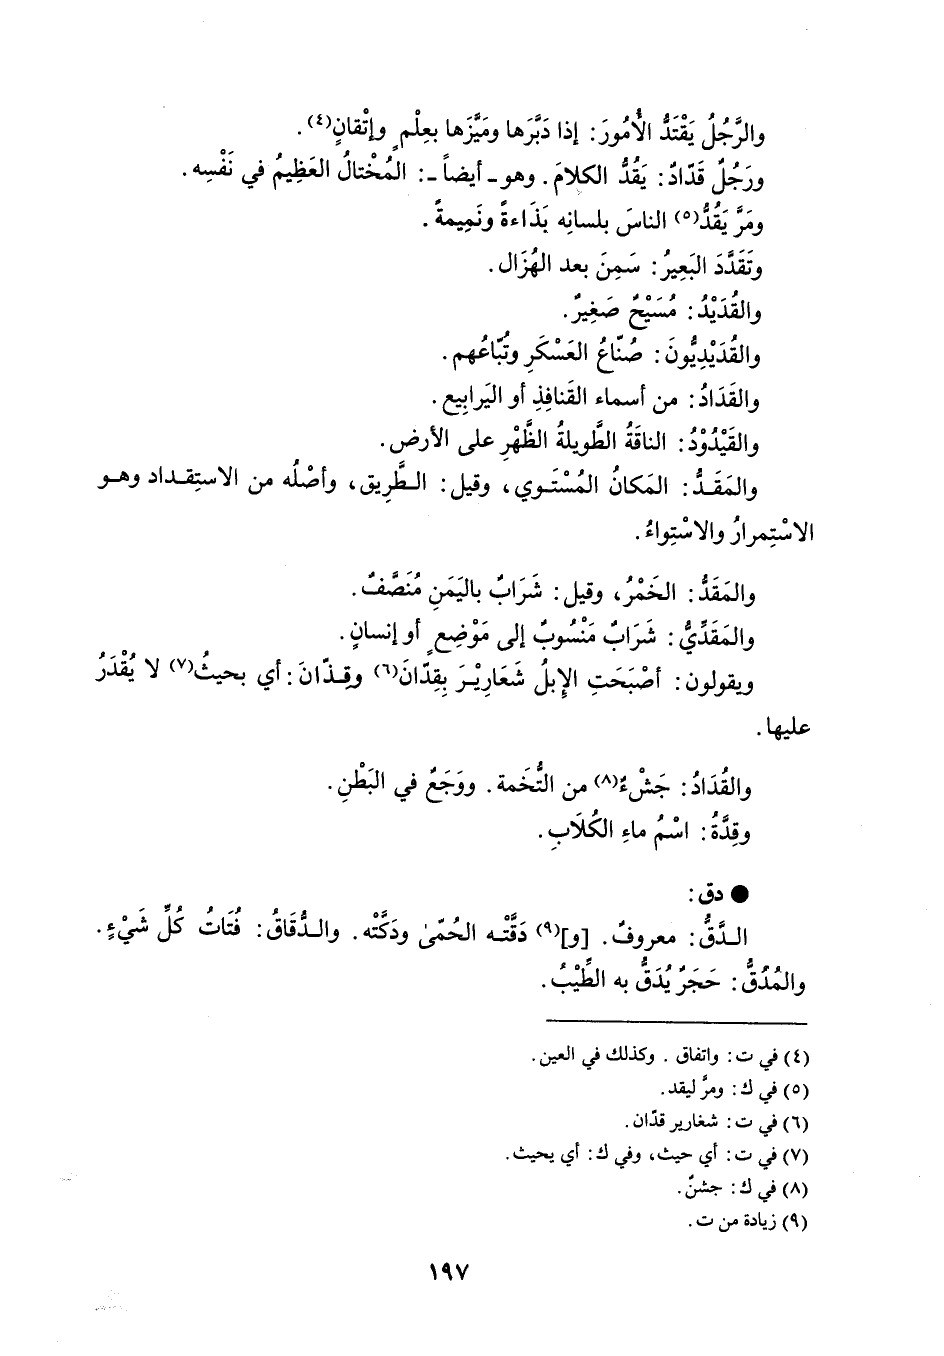 والرَّجُلُ يَقْتَدُّ الأُمُورَ: إذا دَبَّرَها ومَيَّزَها بعِلْمٍ وإتْقانٍ(٤).
ورَجُلٌ قَدّادٌ: يَقُدُّ الكلامَ. وهو ـ أيضاً ـ: المُخْتالُ العَظِيمُ في نَفْسِه.
ومَرَّ يَقُدُّ(٥) الناسَ بلسانِه بَذَاءةً ونَمِيمةً.
وتَقَدَّدَ البَعِيرُ: سَمِنَ بعد الهُزَال.
والقُدَيْدُ: مُسَيْحٌ صَغِيرٌ.
والقُدَيْدِيُّونَ: صُنّاعُ العَسْكَرِ وتُبّاعُهم.
والقَدَادُ: من أسماء القَنافِذِ أو اليَرابِيع.
والقَيْدُوْدُ: الناقَةُ الطَّويلةُ الظَّهْرِ على الأرض.
والمَقَدُّ: المَكانُ المُسْتَوي، وقيل: الطَّرِيق، وأصْلُه من الاستِقْداد وهو
الاسْتِمرارُ والاسْتِواءُ.
والمَقَدُّ: الخَمْرُ، وقيل: شَرَابٌ باليَمَنِ مُنَصَّفٌ.
والمَقَدِّيُّ: شَرَابٌ مَنْسُوبٌ إلى مَوْضِعٍ أو إنسانٍ.
ويقولون: أصْبَحَتِ الإِبلُ شَعَارِيْرَ بِقِدّانَ(٦) وقِذّانَ: أي بحيثُ(٧) لا يُقْدَرُ
عليها.
والقُدَادُ: جَشْءٌ(٨) من التُّخَمة. ووَجَعٌ في البَطْنِ.
وقِدَّةُ: اسْمُ ماءِ الكُلَابِ.
● دق:
الدَّقُّ: معروفٌ. [و](٩) دَقَّتْه الحُمّىٰ ودَكَّتْه. والدُّقَاقُ: فُتَاتُ كُلِّ شَيْءٍ.
والمُدُقُّ: حَجَرٌ يُدَقُّ به الطِّيْبُ.
(٤) في ت: واتفاق. وكذلك في العين.
(٥) في ك: ومرَّ ليقد.
(٦) في ت: شغارير قدّان.
(٧) في ت: أي حيث، وفي ك: أي يحيث.
(٨) في ك: جشنٌ.
(٩) زيادة من ت.
١٩٧